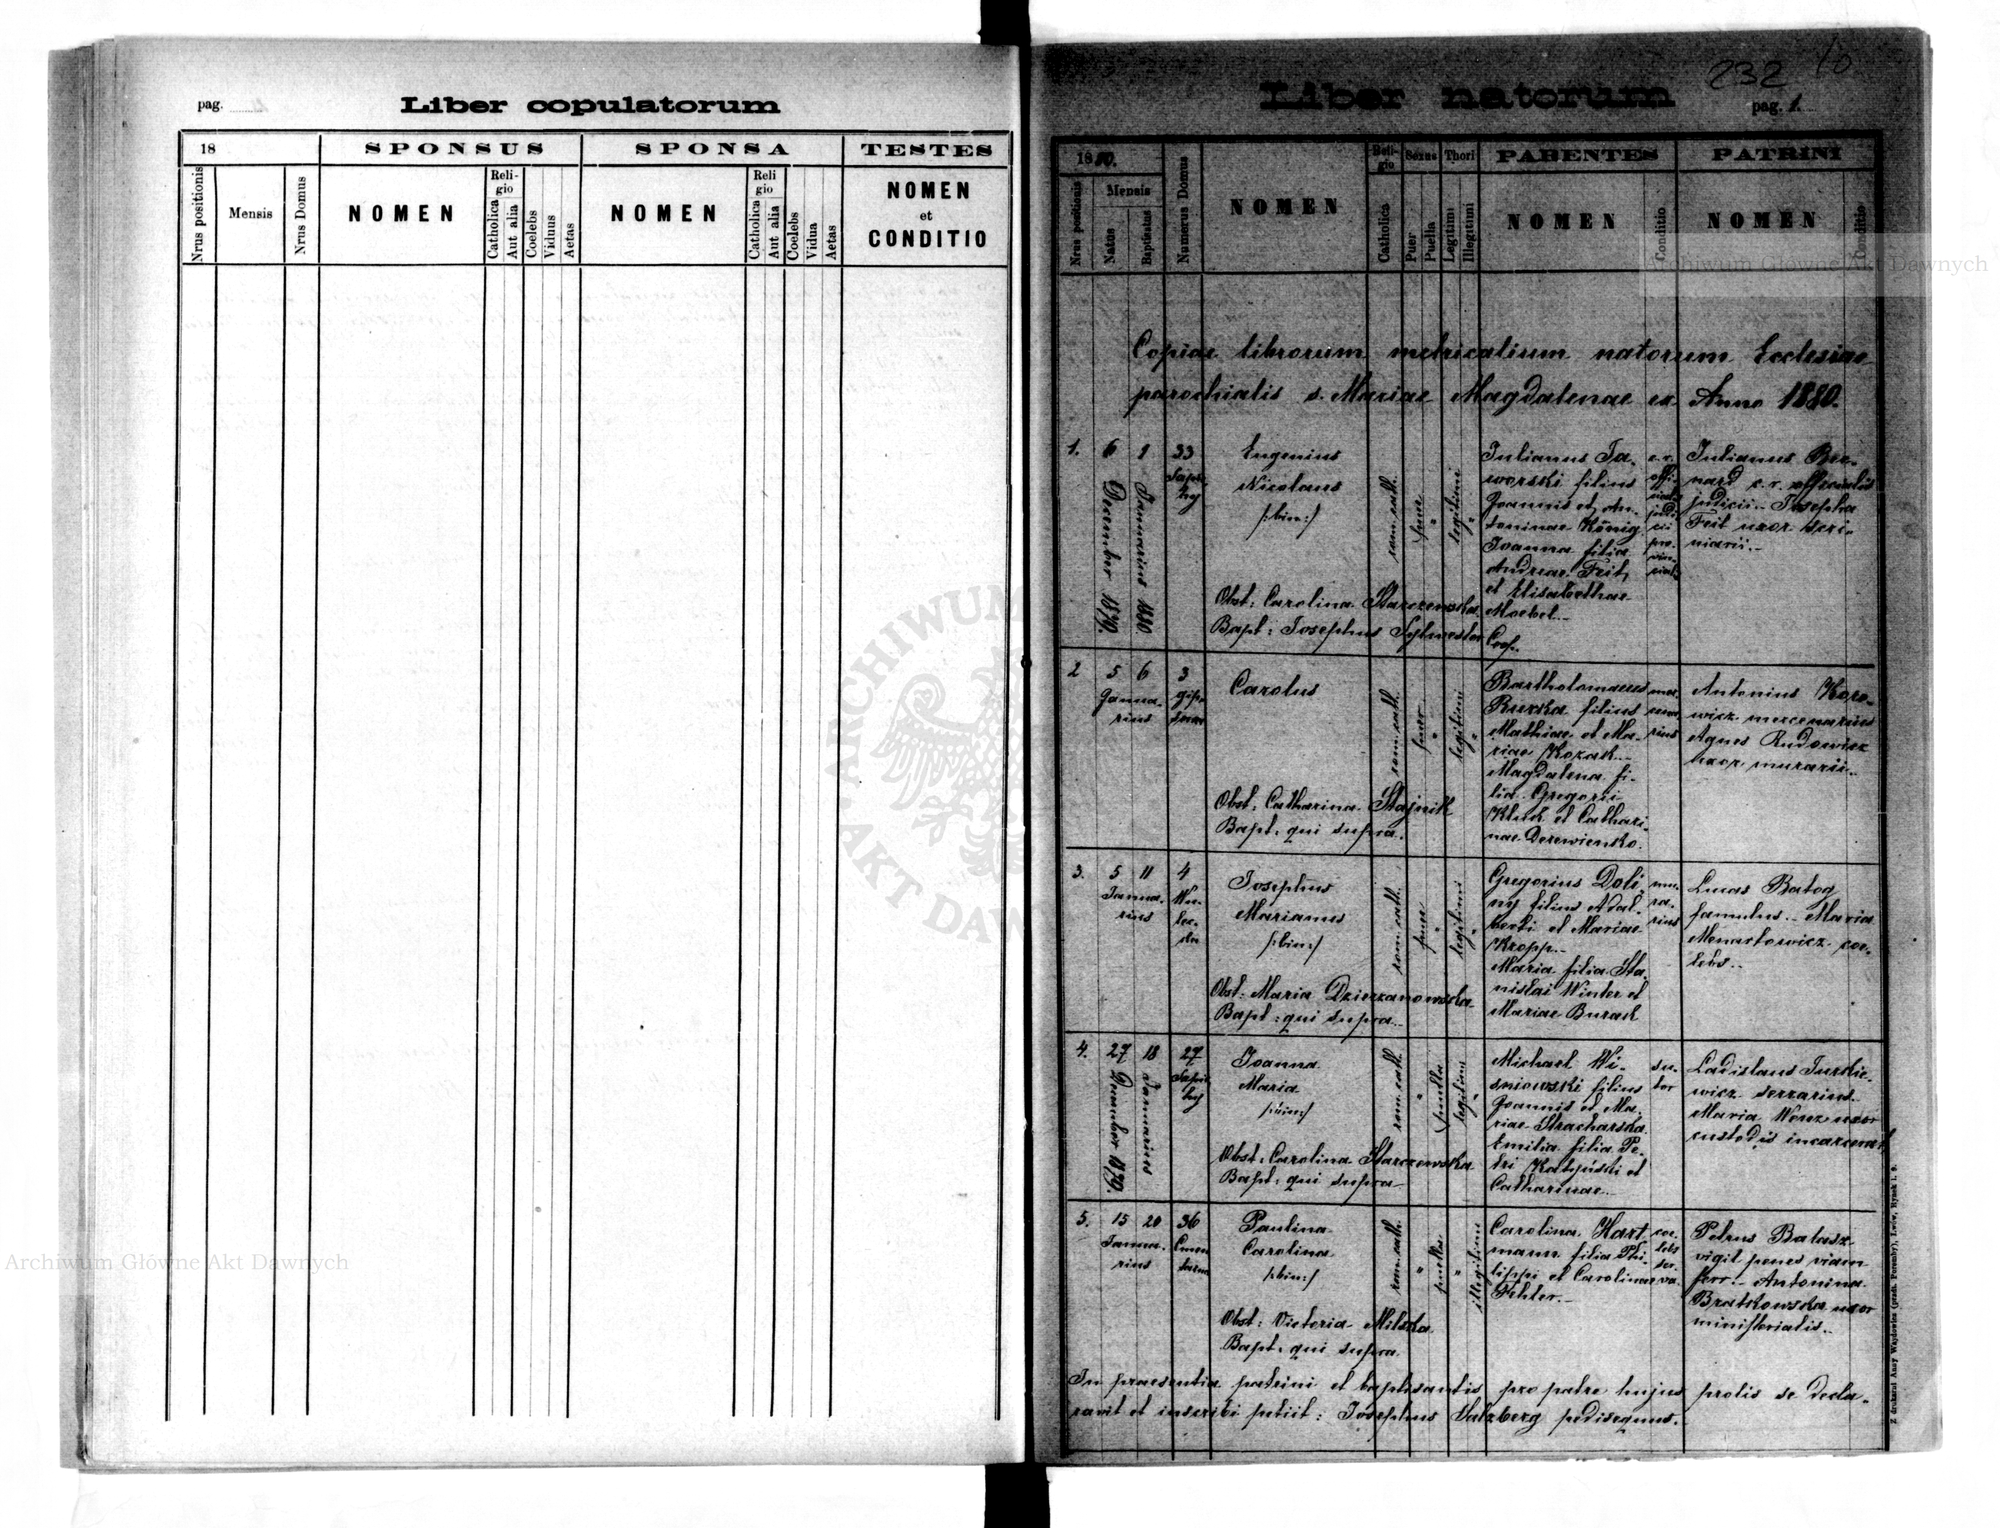 pag.
Liber copulatorum
18
SPONSUS
SPONSA
TESTES
Nrus positionis
Mensis
Nrus Domus
NOMEN
Religio
Catholica
Aut alia
Coelebs
Viduus
Aetas
NOMEN
Religio
Catholica
Aut alia
Coelebs
Vidua
Aetas
NOMEN
et
CONDITIO
232
10
Liber natorum
pag. 1.
1880.
Nrus positionis
Mensis
Natus
Baptisatus
Numerus Domus
NOMEN
Religio
Catholica
Sexus
Puer
Puella
Thori
Legitimi
Illegitimi
PARENTES
NOMEN
Conditio
PATRINI
NOMEN
Conditio
Copiae librorum metricalium natorum Ecclesiae
parochialis s. Mariae Magdalenae ex Anno 1880.
1.
6
December 1879.
1
Januarius 1880
33
Sapie-
hy
Eugenius
Nicolaus
/:bin:/
Obst: Carolina Starczewska
Bapt: Josephus Sylwester Coop.
rom. cath.
puer
"
legitimi
"
Julianus Ja-
worski filius
Joannis et An-
toninae König
Joanna filia
Andreae Feit
et Elisabethae
Moebel.-
c. r.
offi-
cial.
judi-
cii
pro-
vin-
cial.
Julianus Ber-
nard c. r. officialis
judicii.- Josepha
Feit uxor scri-
niarii.-
2
5
6
Janua-
rius
3
Carolus
Obst: Catharina Stajnik
Bapt: qui supra.
rom. cath.
puer
"
legitimi
"
Bartholomaeus
Ruzska filius
Mathiae et Ma-
riae Kozak.-
Magdalena fi-
lia Gregorii
Kluk et Cathari-
nae Derewienko.
mer-
cena-
rius
Antonius Koro-
wicz mercenarius
Agnes Rudowicz
uxor murarii.-
3.
5
11
Janua-
rius
4
Wu-
lec-
ka
Josephus
Marianus
/:bin:/
Obst: Maria Dzierzanowska
Bapt: qui supra.-
rom. cath.
puer
"
legitimi
"
Gregorius Doli-
ny filius Adal-
berti et Mariae
Kropp.-
Maria filia Sta-
nislai Winter et
Mariae Burack
mu-
ra-
rius
Lucas Batog
famulus.- Maria
Menartowicz coe-
lebs.-
4.
27
December 1879.
18
Januarius
27
Sapie-
hy
Joanna
Maria
/:bin:/
Obst: Carolina Starczewska
Bapt: qui supra
rom. cath.
"
puella
legitimi
"
Michael Wi-
sniowski filius
Joannis et Ma-
riae Stracharska
Emilia filia Pe-
tri Katyński et
Catharinae.-
su-
tor
Ladislaus Jurkie-
wicz serrarius.-
Maria Wenz uxor
custodis incarcerat.
5.
15
20
Janua-
rius
36
Paulina
Carolina
/:bin:/
Obst: Victoria Milska
Bapt: qui supra
rom. cath.
"
puella
"
illegitimi
Carolina Hart-
mann filia Phi-
lippi et Carolinae
Fehler.-
coe-
lebs
ser-
va
Petrus Balasz
vigil penes viam
ferr.- Antonina
Bratkowska uxor
ministerialis.-
In praesentia patrini et baptisantis pro patre hujus prolis se decla-
ravit et inscribi petiit: Josephus Salzberg pedisequus.
Z drukarni Anny Wajdowicz (przedt. Poremby), Lwów, Rynek l. 9.
ARCHIWUM
AKT DAW
Archiwum Główne Akt Dawnych
Archiwum Główne Akt Dawnych